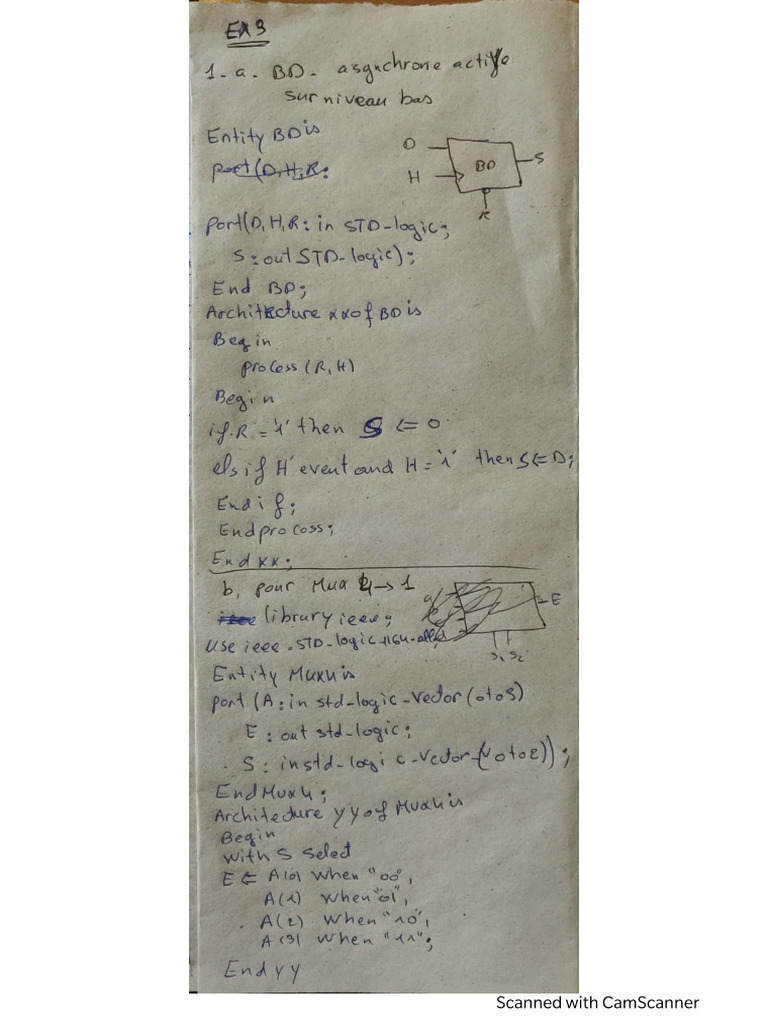 EX 3
1-a- BD- asynchrone active
sur niveau bas
Entity BD is
port(D,H,R:
D
H
BD
S
R
port(D,H,R: in STD-logic;
S: out STD-logic);
End BD;
Architecture xx of BD is
Begin
process (R,H)
Begin
if R = '1' then S <= 0
elsif H'event and H = '1' then S <= D;
End if;
End process;
End xx;
b, pour Mux 4 → 1
library ieee;
Use ieee.STD-logic-1164-all;
E
S1 S2
Entity Mux4 is
port (A: in std-logic-vector (0to3)
E: out std-logic;
S: in std-logic-vector-(0to
End Mux4;
Architecture yy of Mux4 is
Begin
with S select
E <= A(0) when "00",
A(1) when "01",
A(2) when "10",
A(3) when "11";
End yy
Scanned with CamScanner